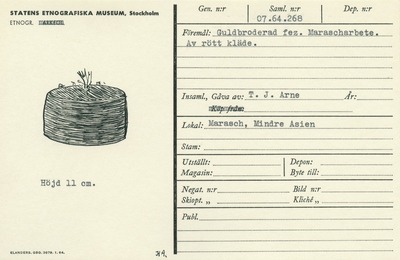 STATENS ETNOGRAFISKA MUSEUM, Stockholm
ETNOGR.
Höjd 11 cm.
ELANDERS, GBG. 5070. 1. 44.
Gen. n:r Saml. n:r Dep. n:r
07.64.268
Föremål: Guldbroderad fez. Marascharbete.
Av rött kläde.
Insaml., Gåva av: T. J. Arne År:
Köp från:
Lokal: Marasch, Mindre Asien
Stam:
Utställt: Depon:
Magasin: Byte till:
Negat. n:r Bild n:r
Skiopt. „ Kliché „
Publ.